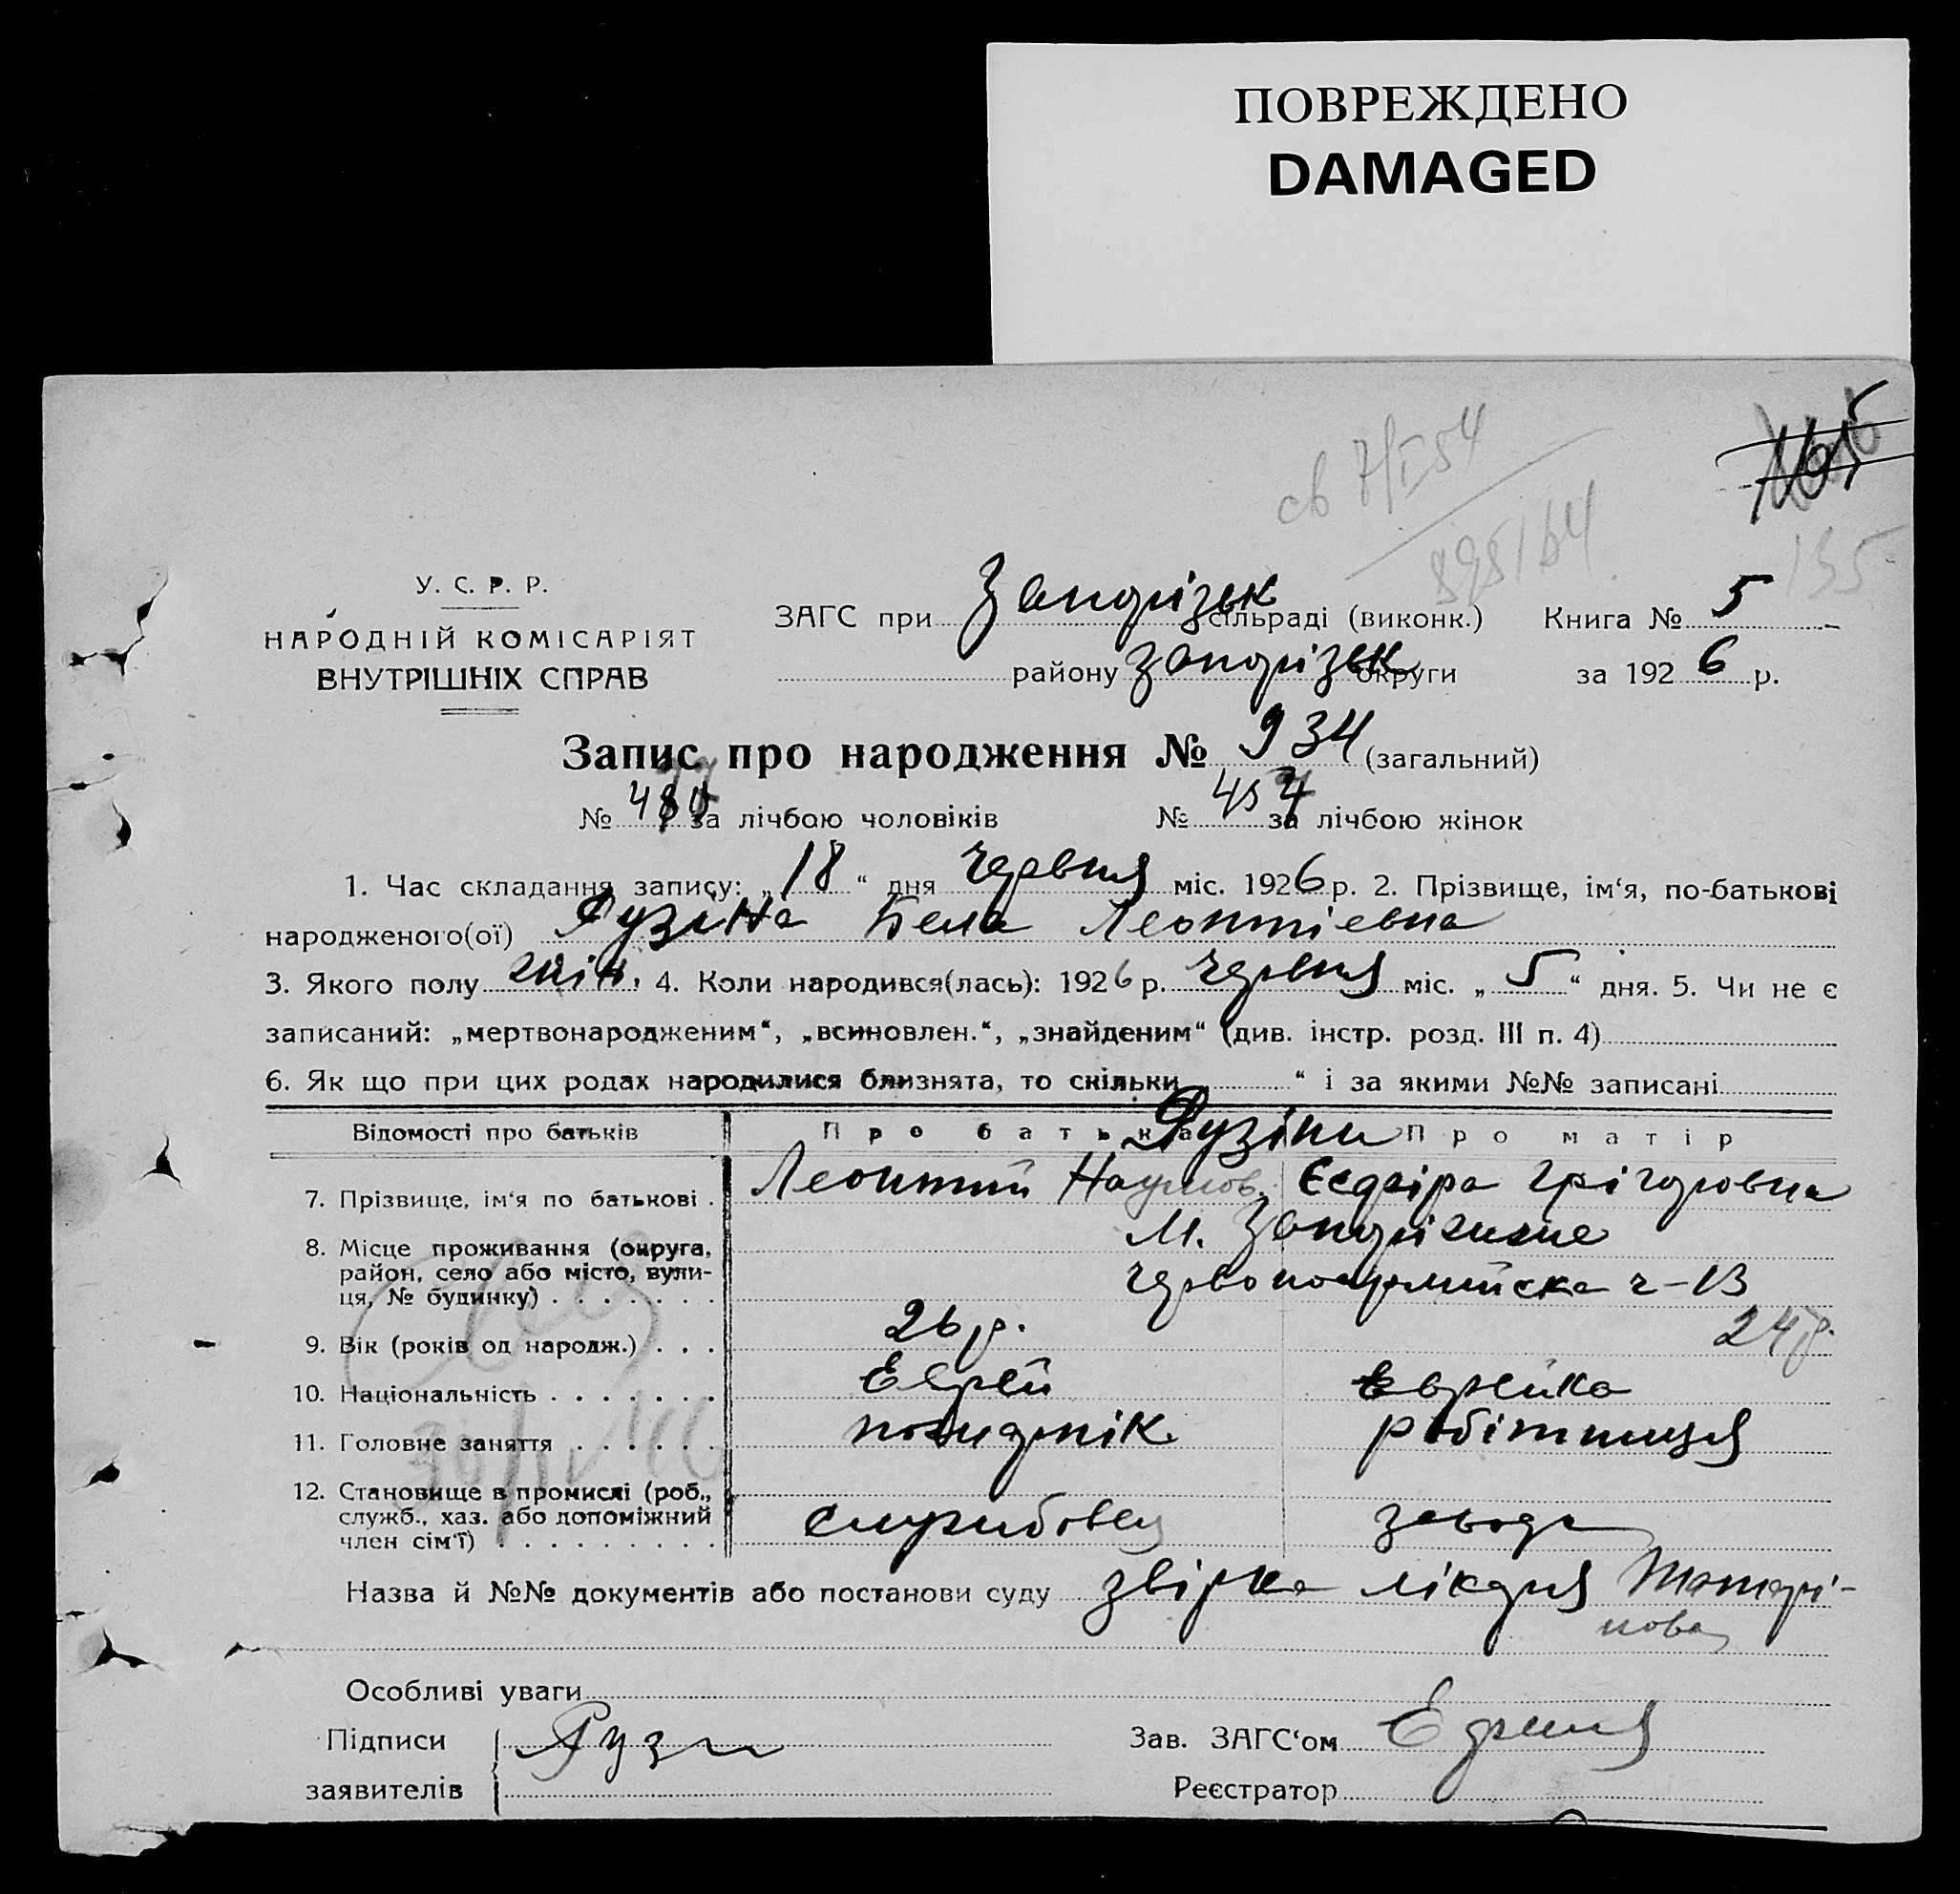 ПОВРЕЖДЕНО
DAMAGED
св 7/I 54
135
У. С. Р. Р.
НАРОДНІЙ КОМІСАРІЯТ
ВНУТРІШНІХ СПРАВ
ЗАГС при Запорізьк сільраді (виконк.) Книга № 5
району Запорізьк округи за 1926 р.
Запис про народження № 934 (загальний)
№ за лічбою чоловіків № 457 за лічбою жінок
1. Час складання запису: „18“ дня червня міс. 1926 р. 2. Прізвище, ім‘я, по-батькові
народженого(ої) Рузіна Бела Леонтіевна
3. Якого полу жін. 4. Коли народився(лась): 1926 р. червня міс. „5“ дня. 5. Чи не є
записаний: „мертвонародженим“, „всиновлен.“, „знайденим“ (див. інстр. розд. III п. 4)
6. Як що при цих родах народилися близнята, то скільки “ і за якими №№ записані
Відомості про батьків Про батька Рузіни Про матір
7. Прізвище, ім‘я по батькові . Леонтий Наумов. Єсфіра Грігоровна
8. Місце проживання (округа, район, село або місто, вулиця, № будинку) м. Запоріжже
Червоноармійска ч-13
9. Вік (років од народж.) . . . 26 р. 24 р.
10. Національність . . . . . . . Еврей Еврейка
11. Головне заняття . . . . . . робітниця
12. Становище в промислі (роб., служб., хаз. або допоміжний член сім‘ї) . . . . . . . . . службовец завода
Назва й №№ документів або постанови суду звірка лікаря Татарі-
нова
Особливі уваги
Підписи
заявителів Рузин
Зав. ЗАГС‘ом
Реєстратор